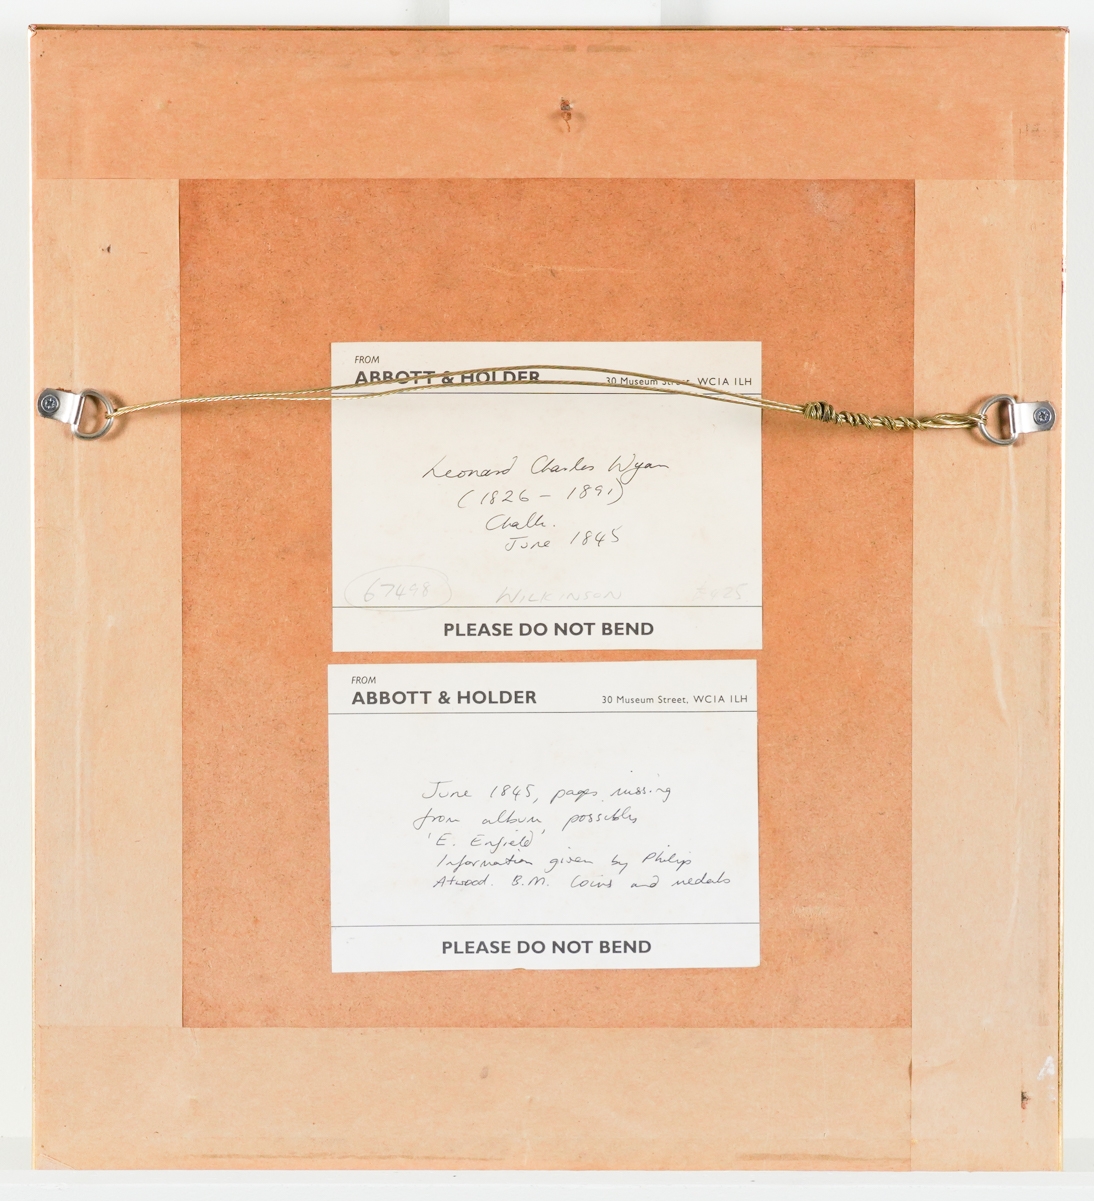 FROM
ABBOTT & HOLDER
30 Museum Street, WC1A 1LH
Leonard Charles Wyon
(1826 - 1891)
Chalk.
June 1845
67498 WILKINSON
PLEASE DO NOT BEND
FROM
ABBOTT & HOLDER
30 Museum Street, WC1A 1LH
June 1845, pages missing
from album possibly
'E. Enfield'
Information given by Philip
Atwood. B.M. Coins and medals
PLEASE DO NOT BEND